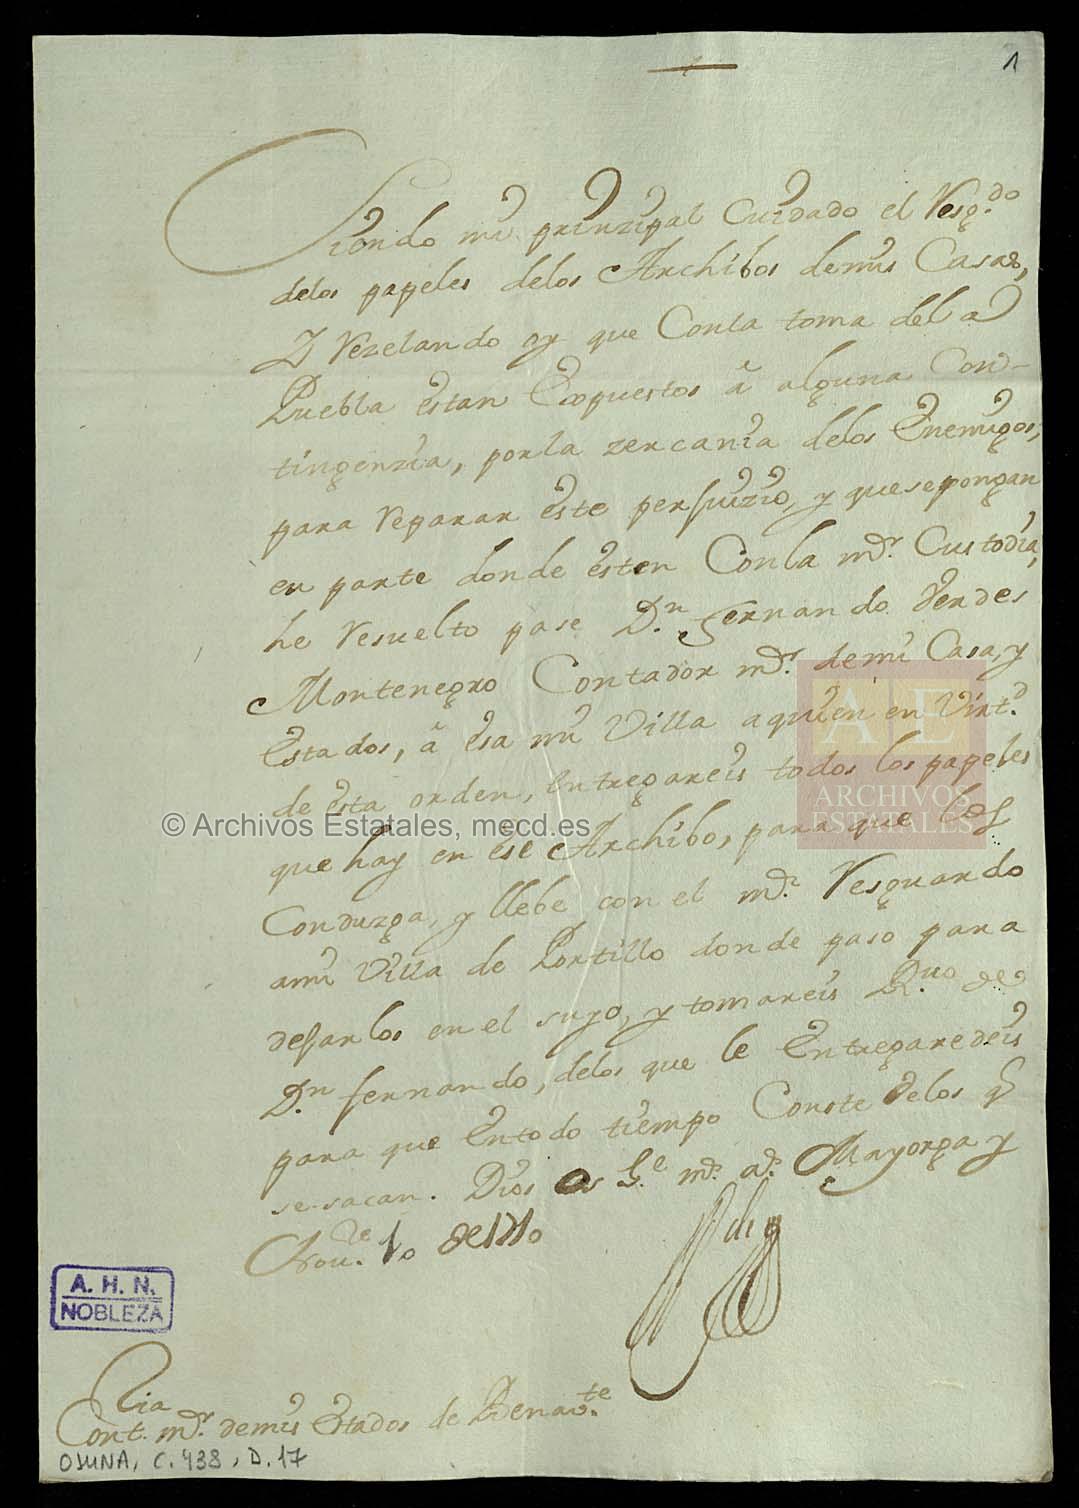 1
Siendo mi prinzipal Cuidado el Resg.do
delos papeles delos Archibos demis Casas,
Y Rezelando oy que Conla toma dela
Puebla estan Expuestos â alguna Con-
tingenzia, porla zercania delos Enemigos,
para reparar este perjuizio, y quesepongan
en parte donde esten Conla mr. Custodia,
he resuelto pase D.n fernando Verdes
Montenegro Contador mr. demi Casa, y
Estados, â esa mi Villa aquien en Virt.d
de esta orden, entregareis todos los papeles
que hay en ese Archibo, para que los
Conduzga, y llebe con el mr. Resguardo
ami Villa de Portillo donde paso para
dejarlos en el suyo, y tomareis R.uo de
D.n fernando, delos que le Entregaredeis
para que Entodo tiempo Conste delos q
se sacan. Dios os G.e m.s a.s Mayorga y
Nou.re 10 de 1710
Cont.ria mr. demis Estados de Benav.te
OSUNA, C. 438, D. 17
A. H. N.
NOBLEZA
AE
ARCHIVOS
ESTATALES
© Archivos Estatales, mecd.es